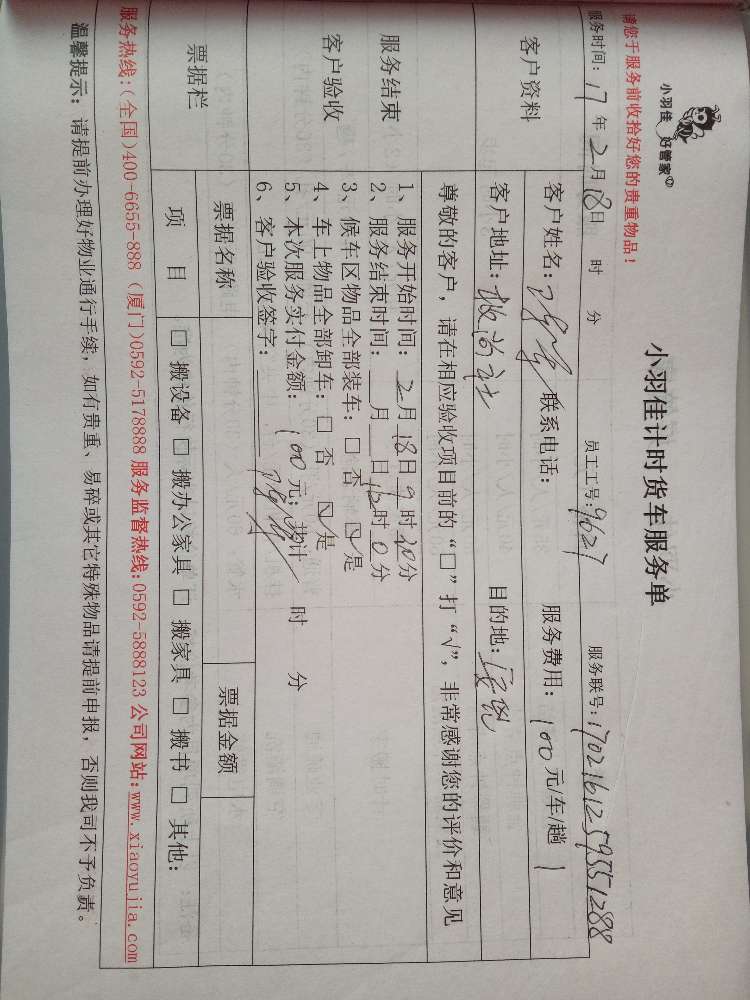 小羽佳 好管家
请您于服务前收拾好您的贵重物品！
小羽佳计时货车服务单
服务时间：17年2月18日 时 分 员工工号：9627 服务联号：17021612595551288
客户资料
客户姓名： 联系电话： 服务费用：100元/车/趟
客户地址： 目的地：
尊敬的客户，请在相应验收项目前的“□”打“√”，非常感谢您的评价和意见
服务结束
客户验收
1、服务开始时间：2月18日9时20分
2、服务结束时间：__月__日12时0分
3、候车区物品全部装车：□ 否 ☑ 是
4、车上物品全部卸车：□ 否 ☑ 是
5、本次服务实付金额：100元；共计 时 分
6、客户验收签字：
票据栏 票据名称 票据金额
项 目 □ 搬设备 □ 搬办公家具 □ 搬家具 □ 搬书 □ 其他：
服务热线：(全国)400-6655-888 (厦门)0592-5178888 服务监督热线：0592-5888123 公司网站：www.xiaoyujia.com
温馨提示：请提前办理好物业通行手续，如有贵重、易碎或其它特殊物品请提前申报，否则我司不予负责。